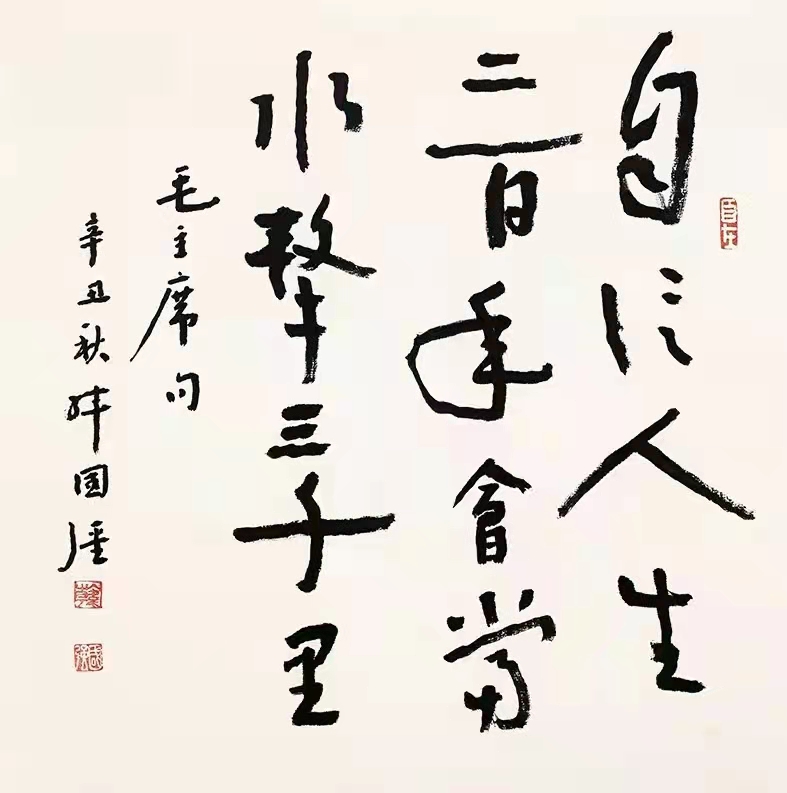 自在
自信人生
二百年會當
水擊三千里
毛主席句
辛丑秋国